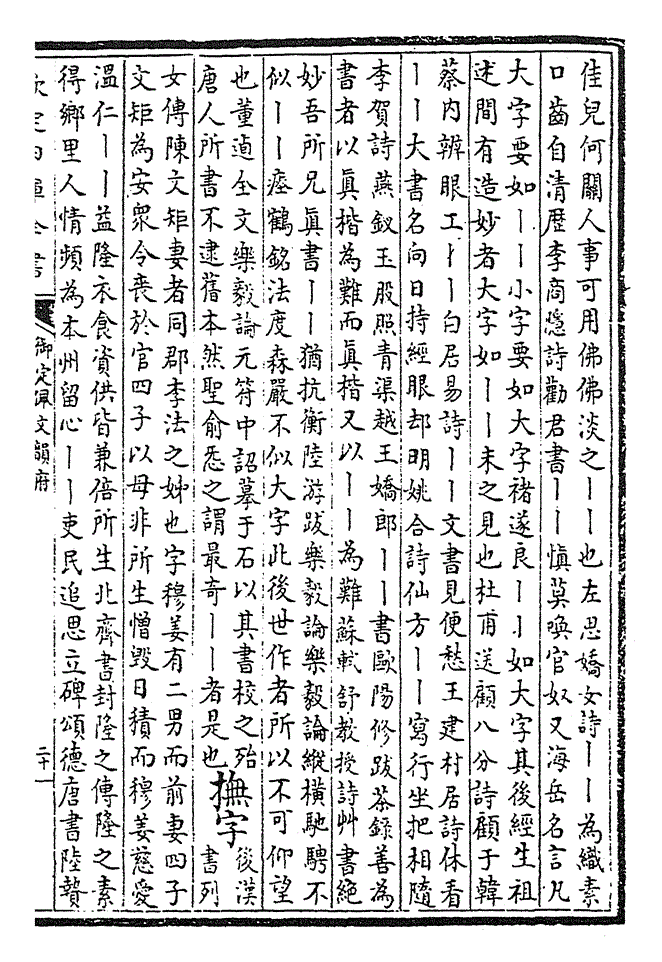 佳兒何關人事可用佛佛淡之丨丨也左思嬌女詩丨丨為織素
口齒自清歴李商隱詩勸君書丨丨慎莫喚官奴又海岳名言凡
大字要如丨丨小字要如大字褚遂良丨丨如大字其後經生祖
述間有造妙者大字如丨丨未之見也杜甫送顧八分詩顧于韓
蔡内辨眼工丨丨白居易詩丨丨文書見便愁王建村居詩休看
丨丨大書名向日持經眼却明姚合詩仙方丨丨寫行坐把相隨
李賀詩燕釵玉股照青渠越王嬌郎丨丨書歐陽修跋茶録善為
書者以眞楷為難而眞楷又以丨丨為難蘇軾舒教授詩艸書絶
妙吾所兄眞書丨丨猶抗衡陸游跋樂毅論樂毅論縱横馳騁不
似丨丨瘞鶴銘法度森嚴不似大字此後世作者所以不可仰望
也董逌全文樂毅論元符中詔摹于石以其書校之殆
唐人所書不逮舊本然聖俞悉之謂最奇丨丨者是也
撫字
後漢
書列
女傳陳文矩妻者同郡李法之姊也字穆姜有二男而前妻四子
文矩為安衆令喪於官四子以母非所生憎毁日積而穆姜慈愛
温仁丨丨益隆衣食資供皆兼倍所生北齊書封隆之傳隆之素
得鄉里人情頻為本州留心丨丨吏民追思立碑頌德唐書陸贄
欽定四庫全書
御定佩文韻府
二十一